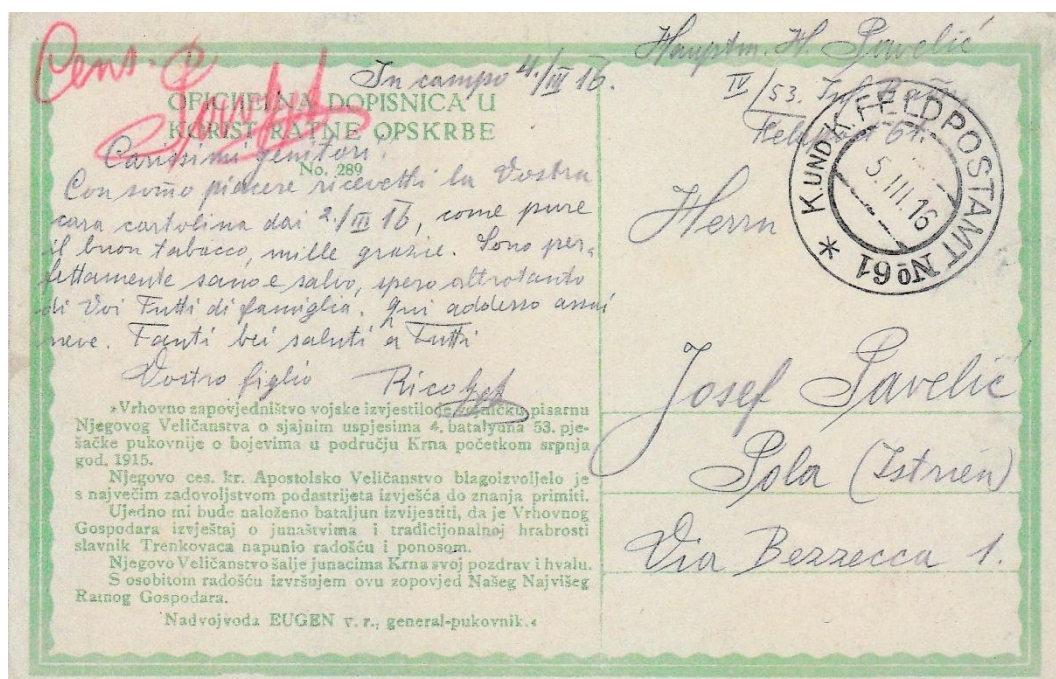 Cens. P
Pavelić
In campo 4./III 16.
OFICIJELNA DOPISNICA U
KORIST RATNE OPSKRBE
No. 289
Carissimi genitori!
Con som̄o piacere ricevetti la Vostra
cara cartolina dai 2./III 16, come pure
il buon tabacco, mille grazie. Sono per-
fettamente sano e salvo, spero altrotanto
di Voi Tutti di famiglia. Qui addesso assai
neve. Tanti bei saluti a Tutti
Vostro figlio Rico
»Vrhovno zapovjedništvo vojske izvjestilo je pisarnu
Njegovog Veličanstva o sjajnim uspjesima 4. bataljuna 53. pje-
šačke pukovnije o bojevima u području Krna početkom srpnja
god. 1915.
Njegovo ces. kr. Apostolsko Veličanstvo blagoizvoljelo je
s največim zadovoljstvom podastrijeta izvješća do znanja primiti.
Ujedno mi bude naloženo bataljun izvijestiti, da je Vrhovnog
Gospodara izvještaj o junaštvima i tradicijonalnoj hrabrosti
slavnik Trenkovaca napunio radošću i ponosom.
Njegovo Veličanstvo šalje junacima Krna svoj pozdrav i hvalu.
S osobitom radošću izvršujem ovu zopovjed Našeg Najvišeg
Ratnog Gospodara.
Nadvojvoda EUGEN v. r., general-pukovnik.«
Hauptm. H. Pavelić
IV/53. Inf. Baon
Feldpost 61.
K. UND K. FELDPOSTAMT No 61 *
5. III. 16
Herrn
Josef Pavelić
Pola (Istrien)
Via Bezzecca 1.